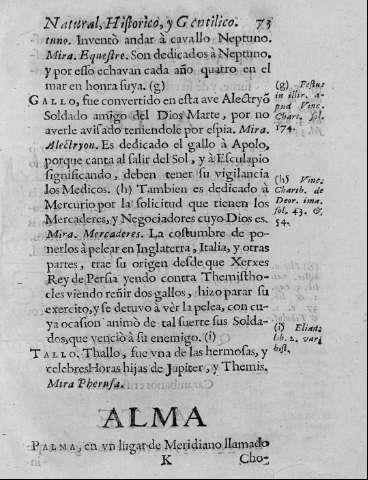 Natural, Historico, y Gentilico. 73
tuno. Inventò andar à cavallo Neptuno.
Mira. Equestre. Son dedicados à Neptuno,
y por esso echavan cada año quatro en el
mar en honra suya. (g)
(g) Festus
in illir. a-
pud Vinc.
Chart. fol.
174.
GALLO, fue convertido en esta ave Alectryõ
Soldado amigo del Dios Marte, por no
averle avisado teniendole por espia. Mira.
Alectryon. Es dedicado el gallo à Apolo,
porque canta al salir del Sol, y à Esculapio
significando, deben tener su vigilancia
los Medicos. (h) Tambien es dedicado à
Mercurio por la solicitud que tienen los
Mercaderes, y Negociadores cuyo Dios es.
(h) Vinc.
Charth. de
Deor. ima.
fol. 43. &
54.
Mira. Mercaderes. La costumbre de po-
nerlos à pelear en Inglaterra, Italia, y otras
partes, trae su origen desde que Xerxes
Rey de Persia yendo contra Themistho-
cles viendo reñir dos gallos, hizo parar su
exercito, y se detuvo à vèr la pelea, con cu-
ya ocasion animò de tal suerte sus Solda-
dos, que venciò a su enemigo. (i)
(i) Elian.
lib. 2. vari
hist.
TALLO. Thallo, fue vna de las hermosas, y
celebres Horas hijas de Jupiter, y Themis.
Mira Pherusa.
ALMA
PALMA, en vn lugar de Meridiano llamado
K Cho-